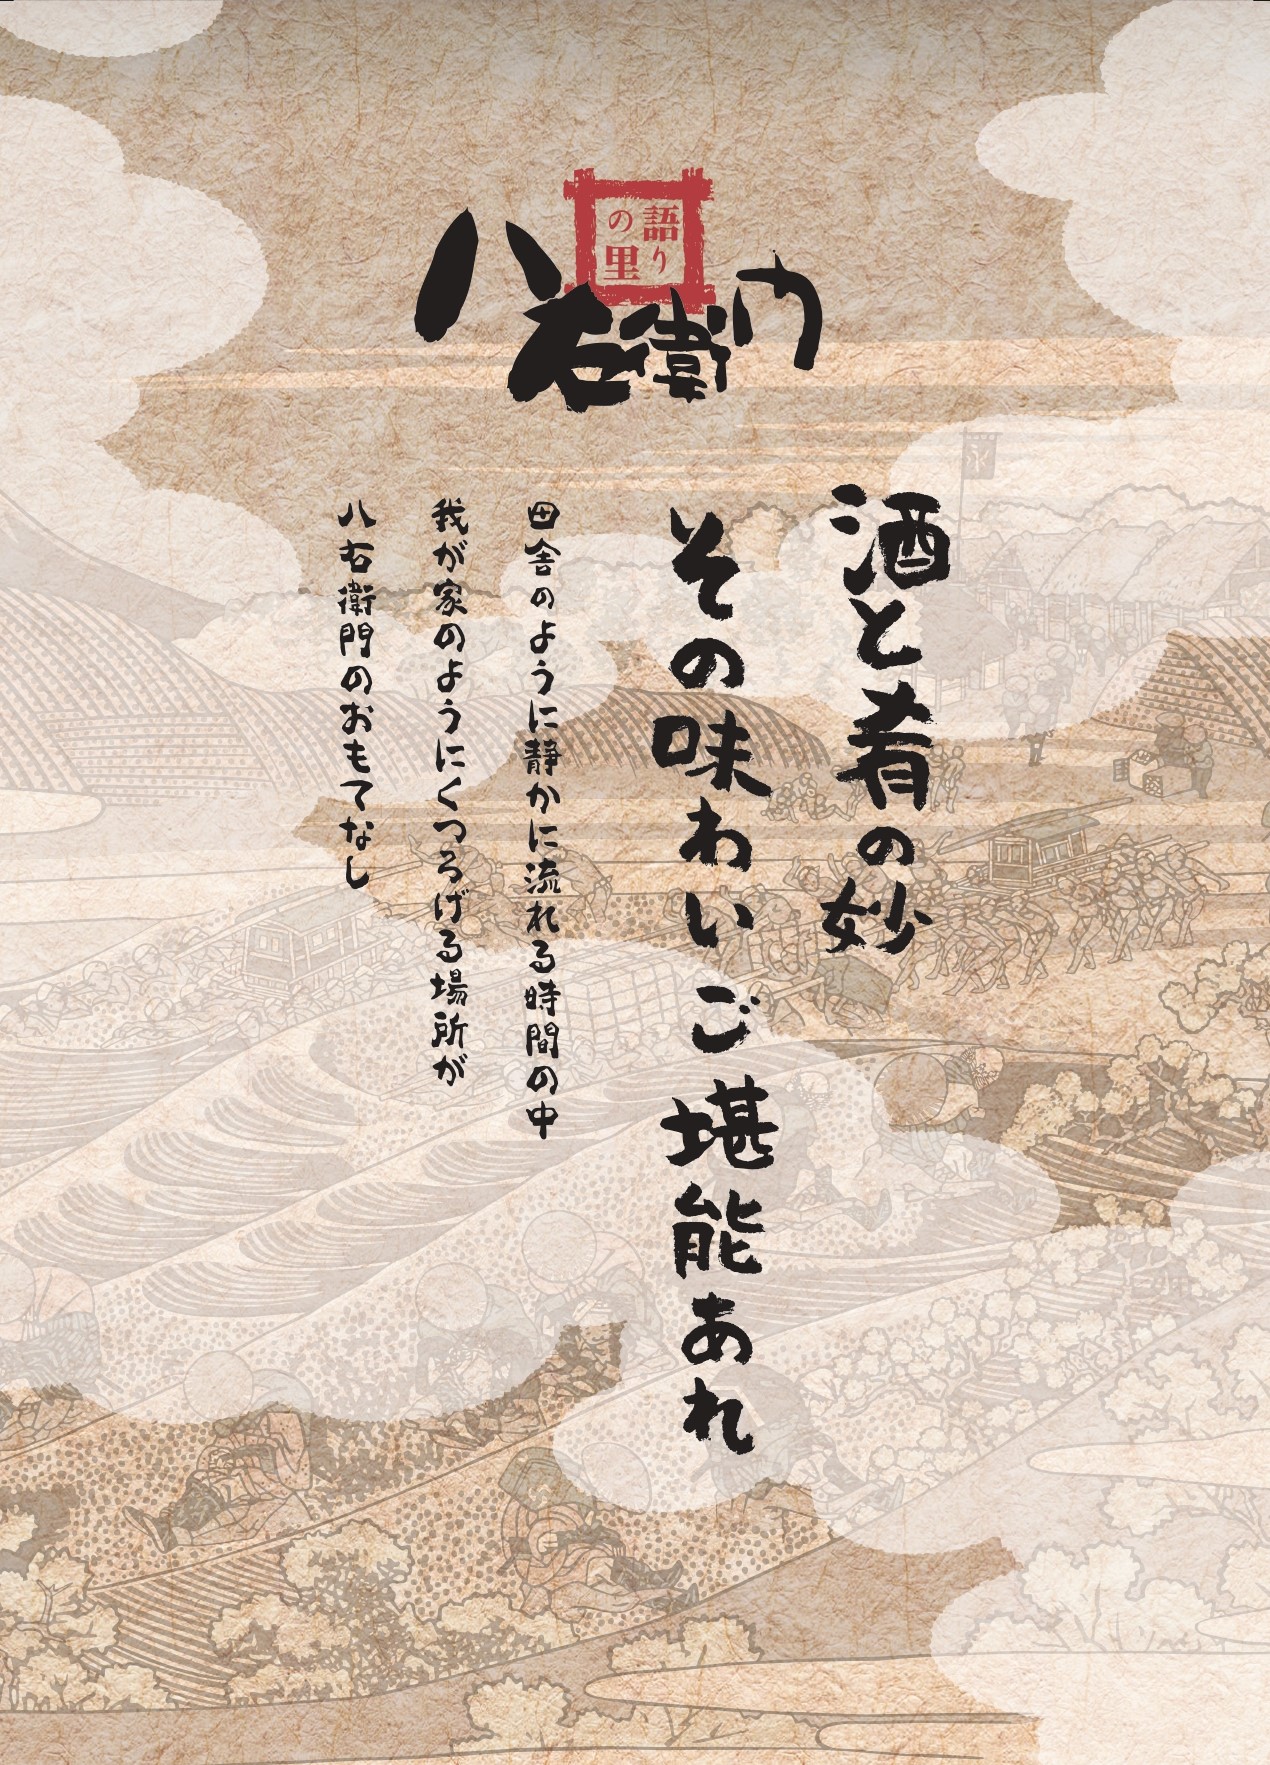 語り
の里
八右衛門
酒と肴の妙
その味わいご堪能あれ
田舎のように静かに流れる時間の中
我が家のようにくつろげる場所が
八右衛門のおもてなし
永